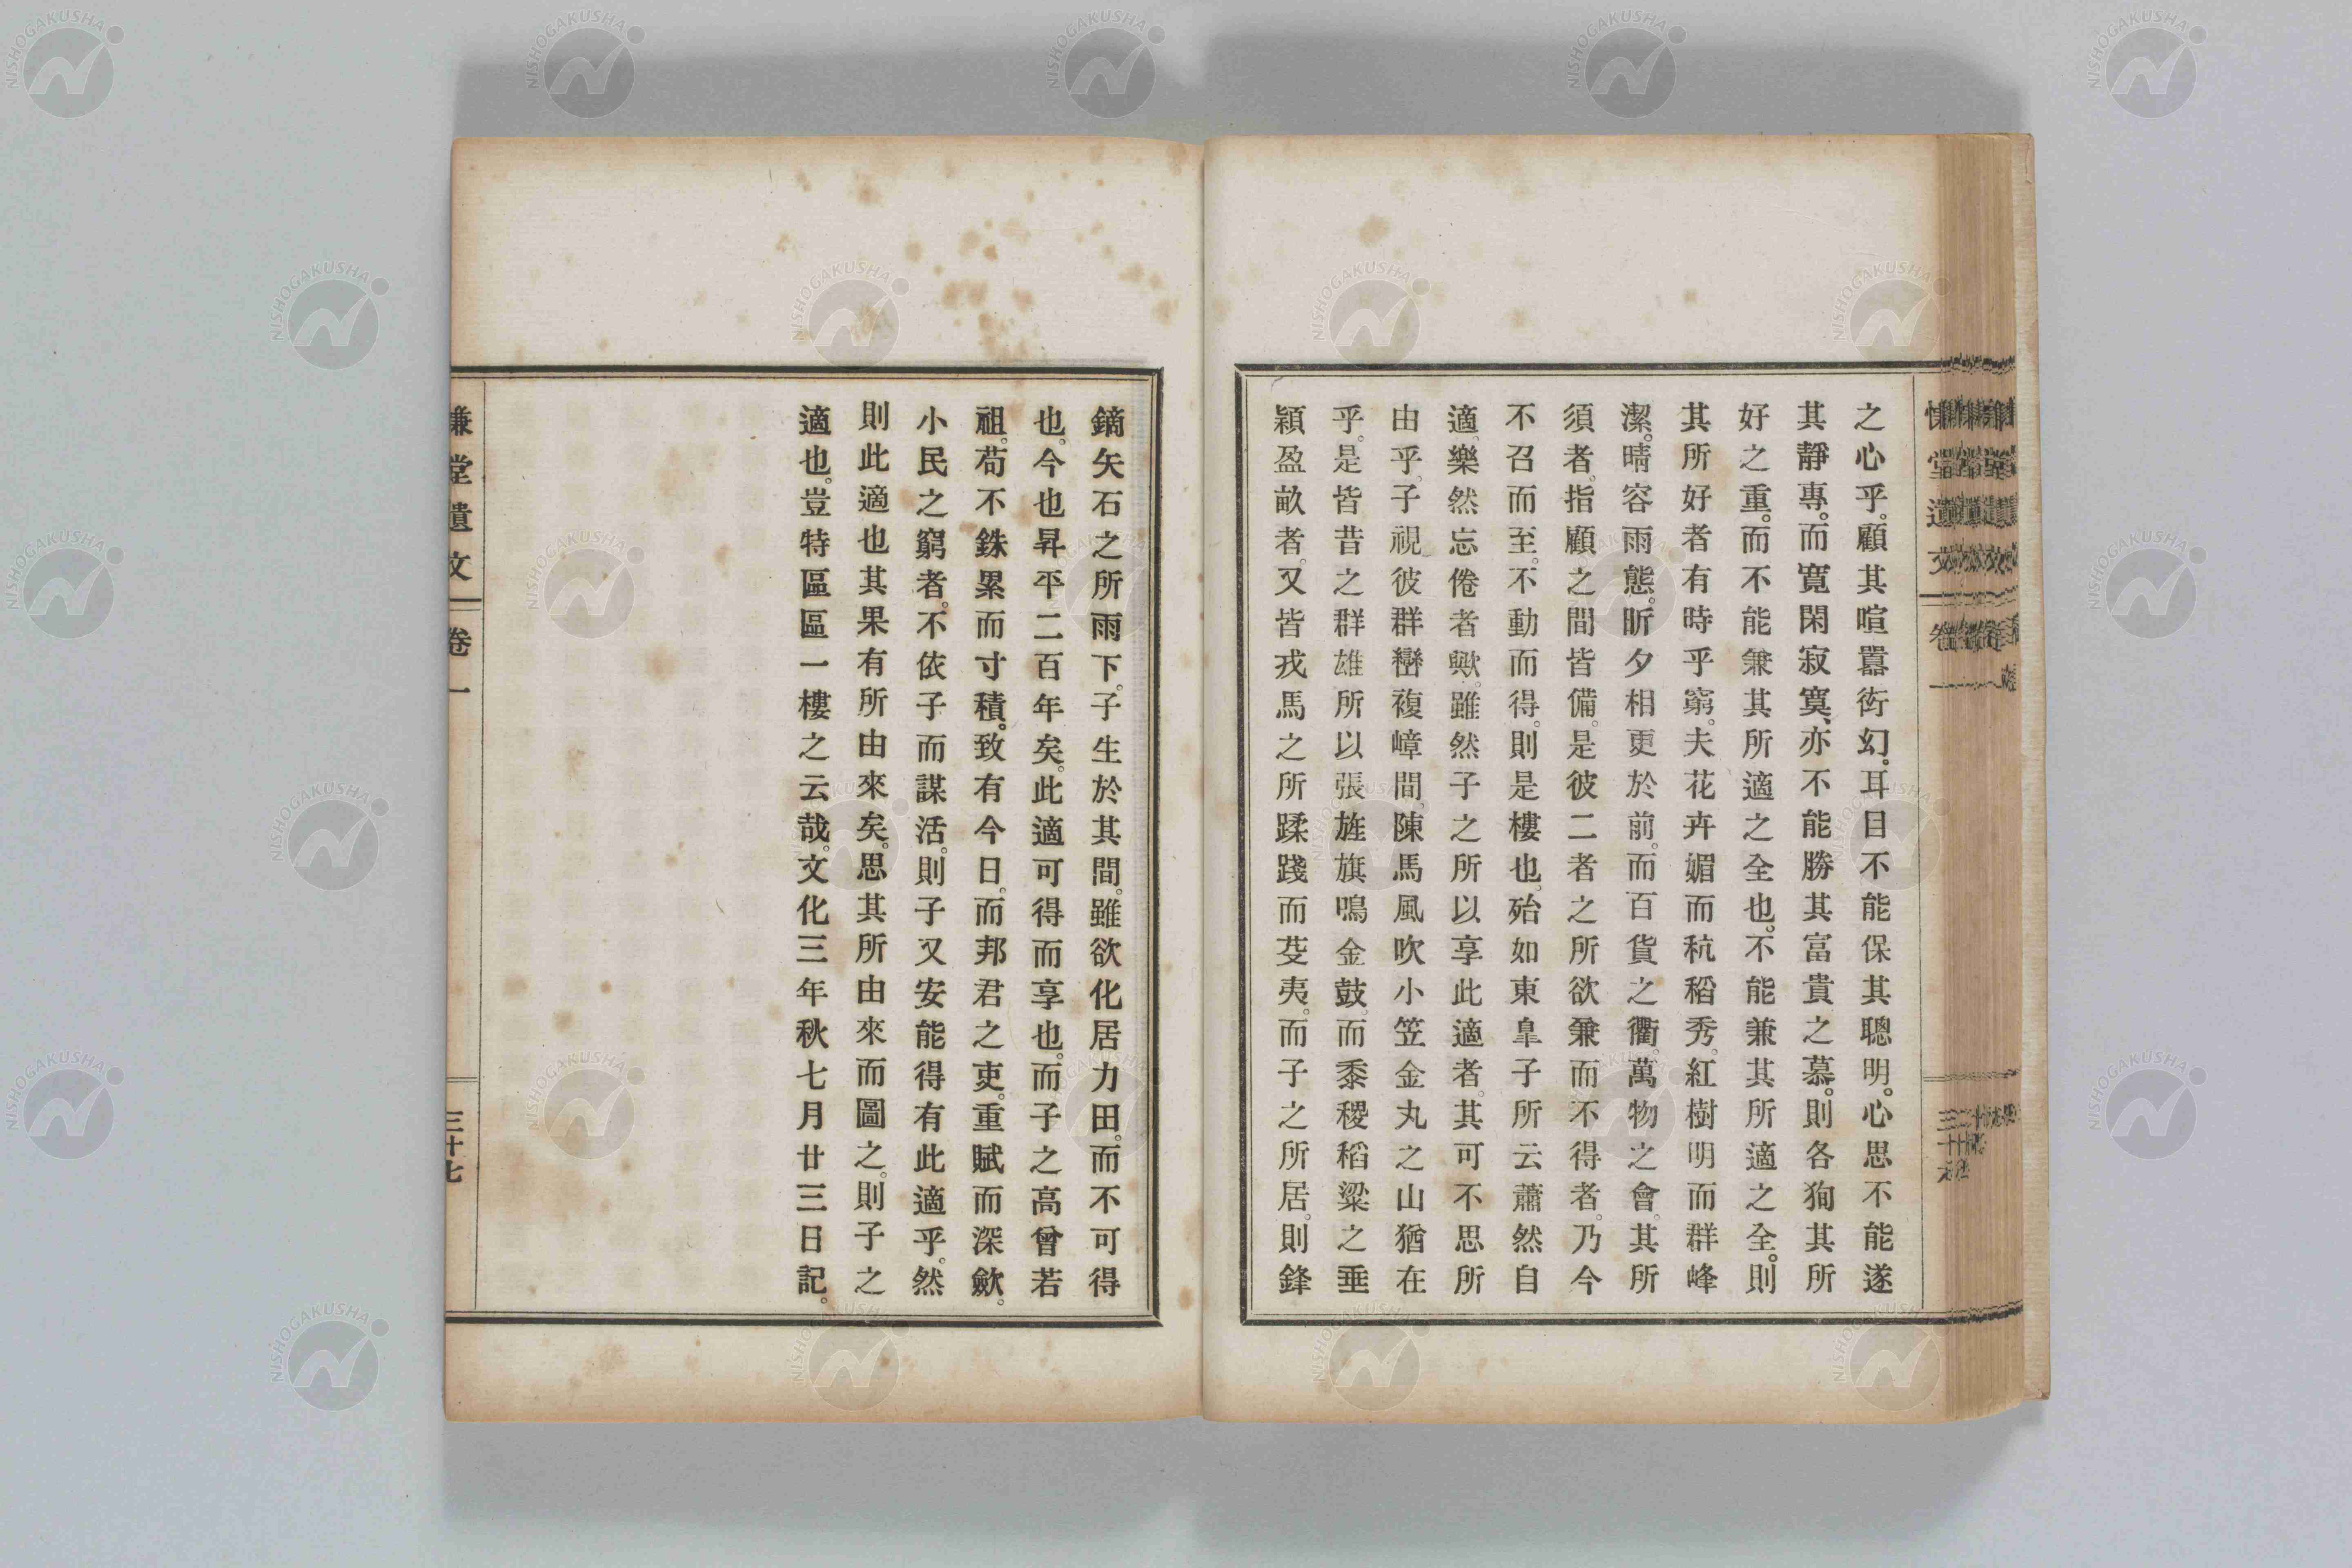 之心乎。顧其喧囂衒幻。耳目不能保其聰明。心思不能遂
其靜專。而寬閑寂寞、亦不能勝其富貴之慕。則各狥其所
好之重。而不能兼其所適之全也。不能兼其所適之全。則
其所好者有時乎窮。夫花卉媚而秔稻秀。紅樹明而群峰
潔。晴容雨態。昕夕相更於前。而百貨之衢。萬物之會。其所
須者。指顧之間皆備。是彼二者之所欲兼而不得者。乃今
不召而至。不動而得。則是樓也。殆如東皐子所云蕭然自
適。樂然忘倦者歟。雖然子之所以享此適者。其可不思所
由乎。子視彼群巒複嶂間。陳馬風吹小笠金丸之山猶在
乎。是皆昔之群雄所以張旌旗鳴金鼓。而黍稷稻粱之垂
穎盈畝者。又皆戎馬之所蹂踐而芟夷。而子之所居。則鋒
鏑矢石之所雨下。子生於其間。雖欲化居力田。而不可得
也。今也昇平二百年矣。此適可得而享也。而子之高曾若
祖。苟不銖累而寸積。致有今日。而邦君之吏。重賦而深歛。
小民之窮者。不依子而謀活。則子又安能得有此適乎。然
則此適也其果有所由來矣。思其所由來而圖之。則子之
適也。豈特區區一樓之云哉。文化三年秋七月廿三日記。
慊堂遺文 卷一 三十七
NISHOGAKUSHA